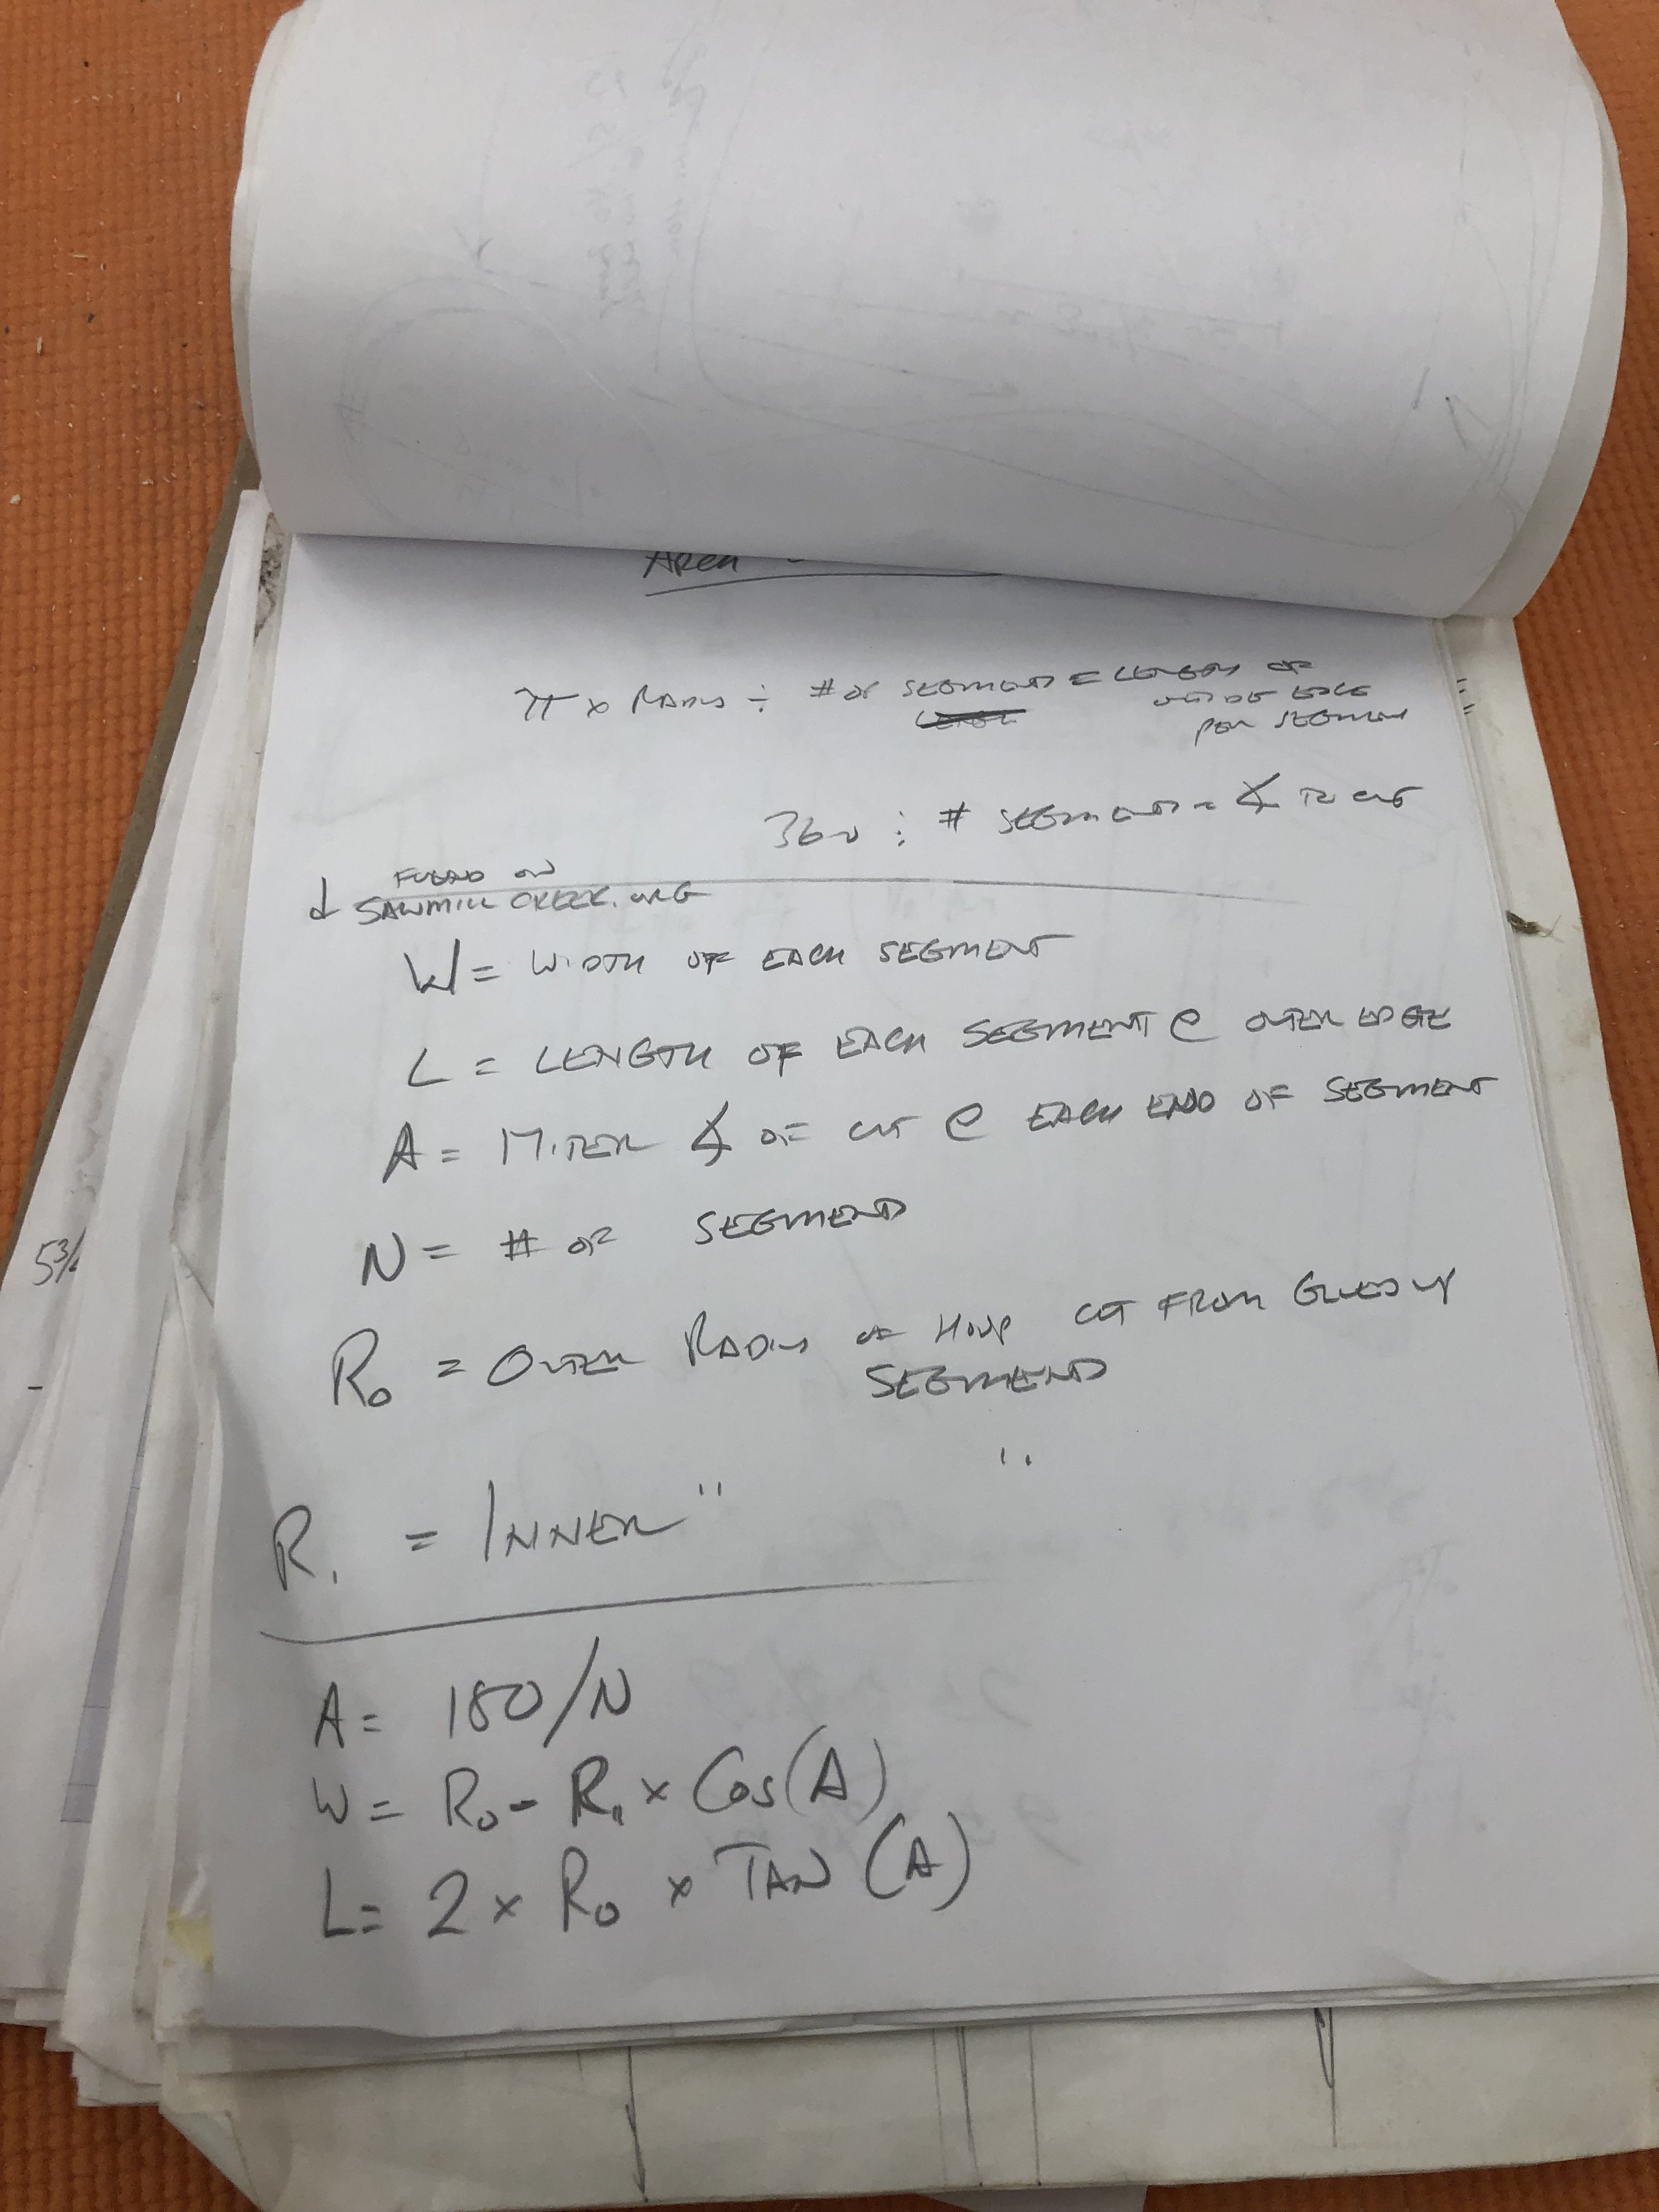 ARCH
π x RADIUS ÷ # OF SEGMENTS = LENGTH OF
EDGE
PER SEGMENT
360 ÷ # SEGMENTS = ∡ TO CUT
↓ FOUND ON
SAWMILL CREEK.ORG
W = WIDTH OF EACH SEGMENT
L = LENGTH OF EACH SEGMENT @ OUTER EDGE
A = MITER ∡ OF CUT @ EACH END OF SEGMENT
N = # OF SEGMENTS
Ro = OUTER RADIUS OF HOOP CUT FROM GLUED UP
SEGMENTS
R1 = INNER " "
A = 180/N
W = Ro - R1 x COS(A)
L = 2 x Ro x TAN (A)
53/